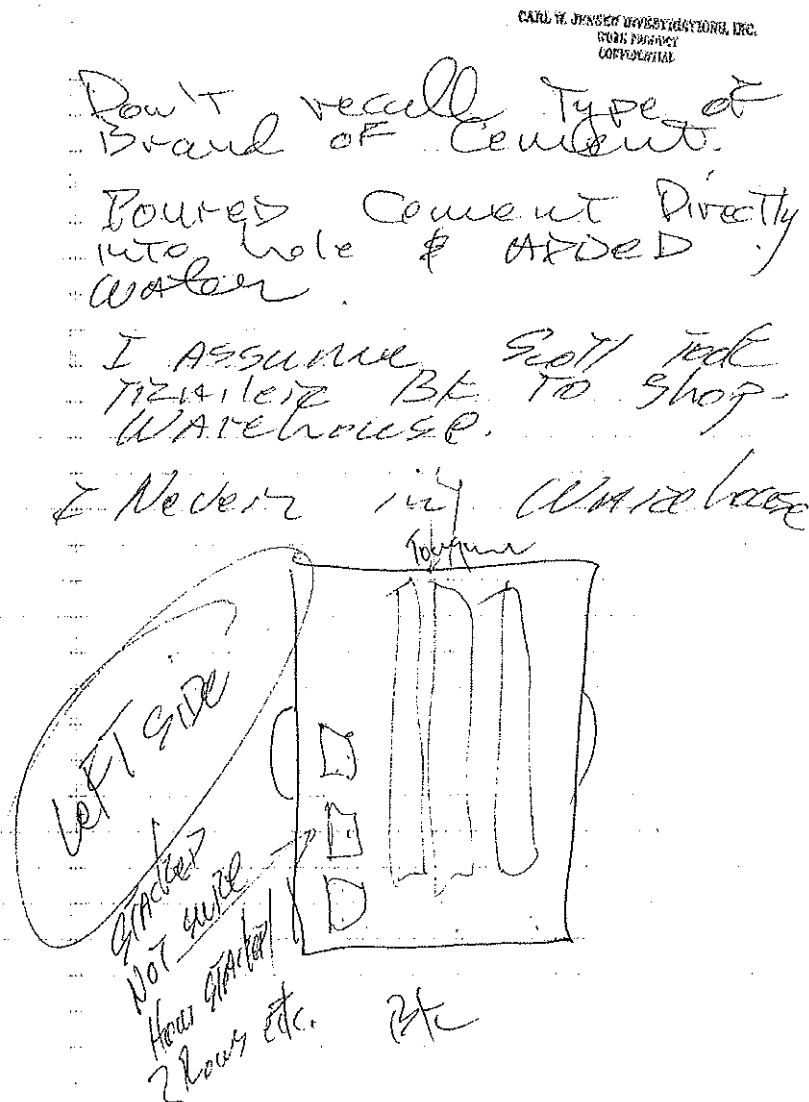 CARL W. JENSEN INVESTIGATIONS, INC.
WORK PRODUCT
CONFIDENTIAL
Don't recall Type of
Brand of Cement.
Poured Cement Directly
into hole & ADDED
water.
I Assume Scott Took
Trailer BK To Shop-
Warehouse.
I Never in Warehouse
LEFT SIDE
STACKED
NOT SURE
How STACKED
2 Rows etc.